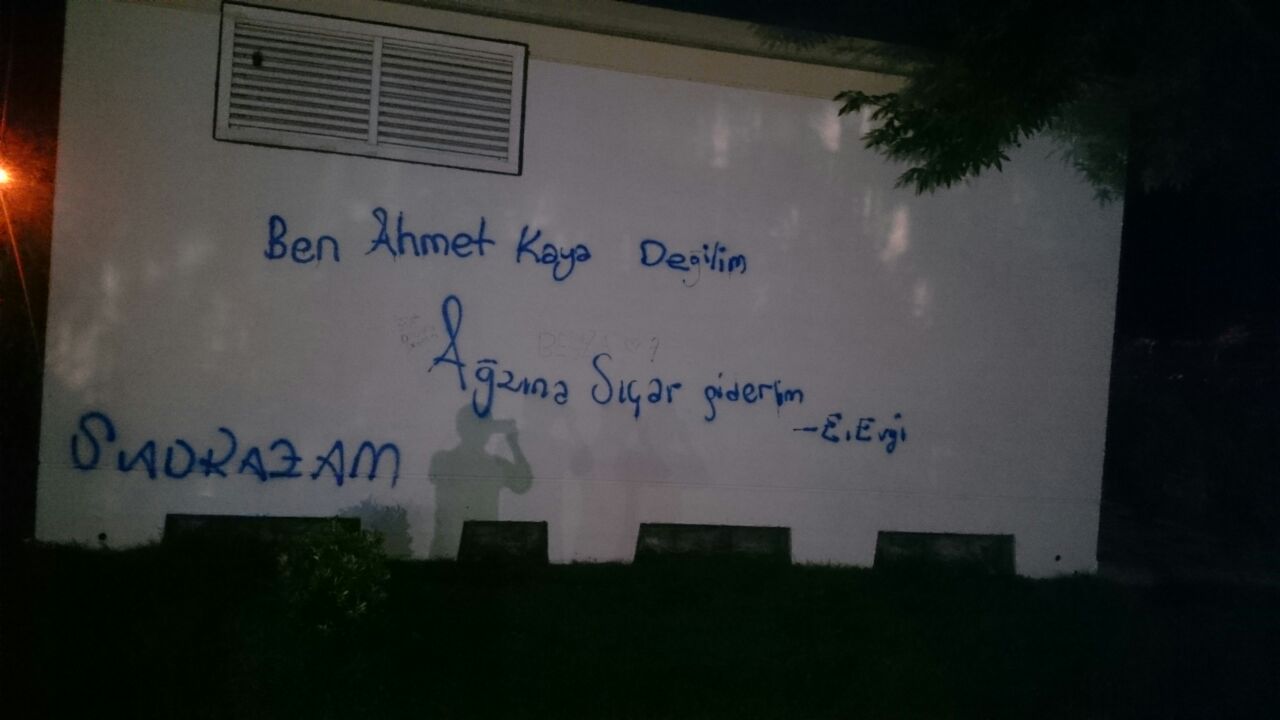 Ben Ahmet Kaya Değilim
Ağzına Sıçar giderim
-E.Evgi
SADRAZAM